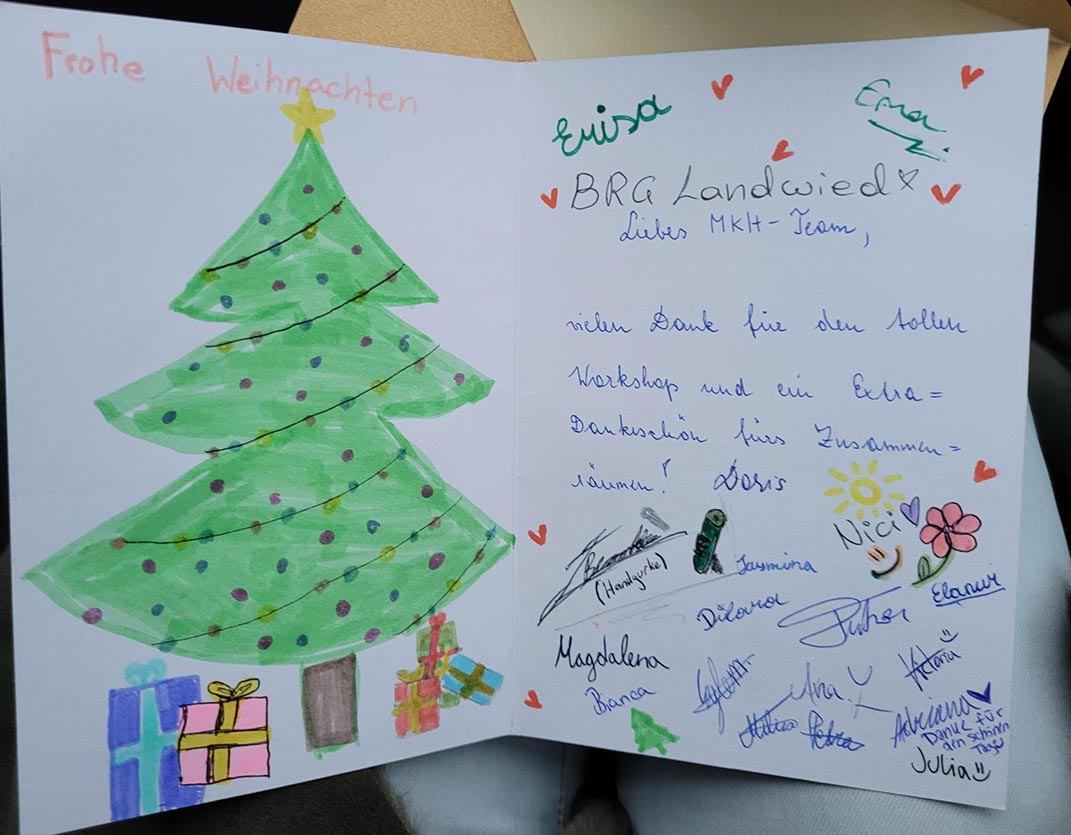 Frohe Weihnachten
Erisa
Ema
BRG Landwied
Liebes MKH-Team,
vielen Dank für den tollen
Workshop und ein Extra=
Dankeschön fürs Zusammen=
räumen! Doris
Nici
(Handgurke)
Jasmina
Elanur
Dilara
Magdalena
Viktoria
Bianca
Ana
Adriana
Danke für
den schönen
Tag
Julia